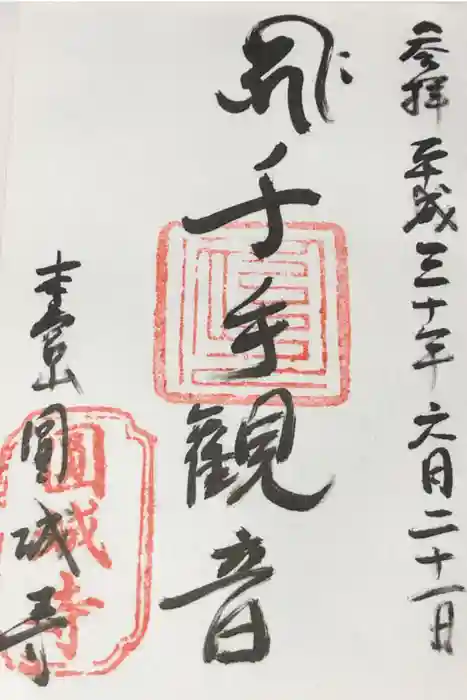 参拝 平成三十年六月二十一日
千手観音
本宮山 圓城寺
圓城寺